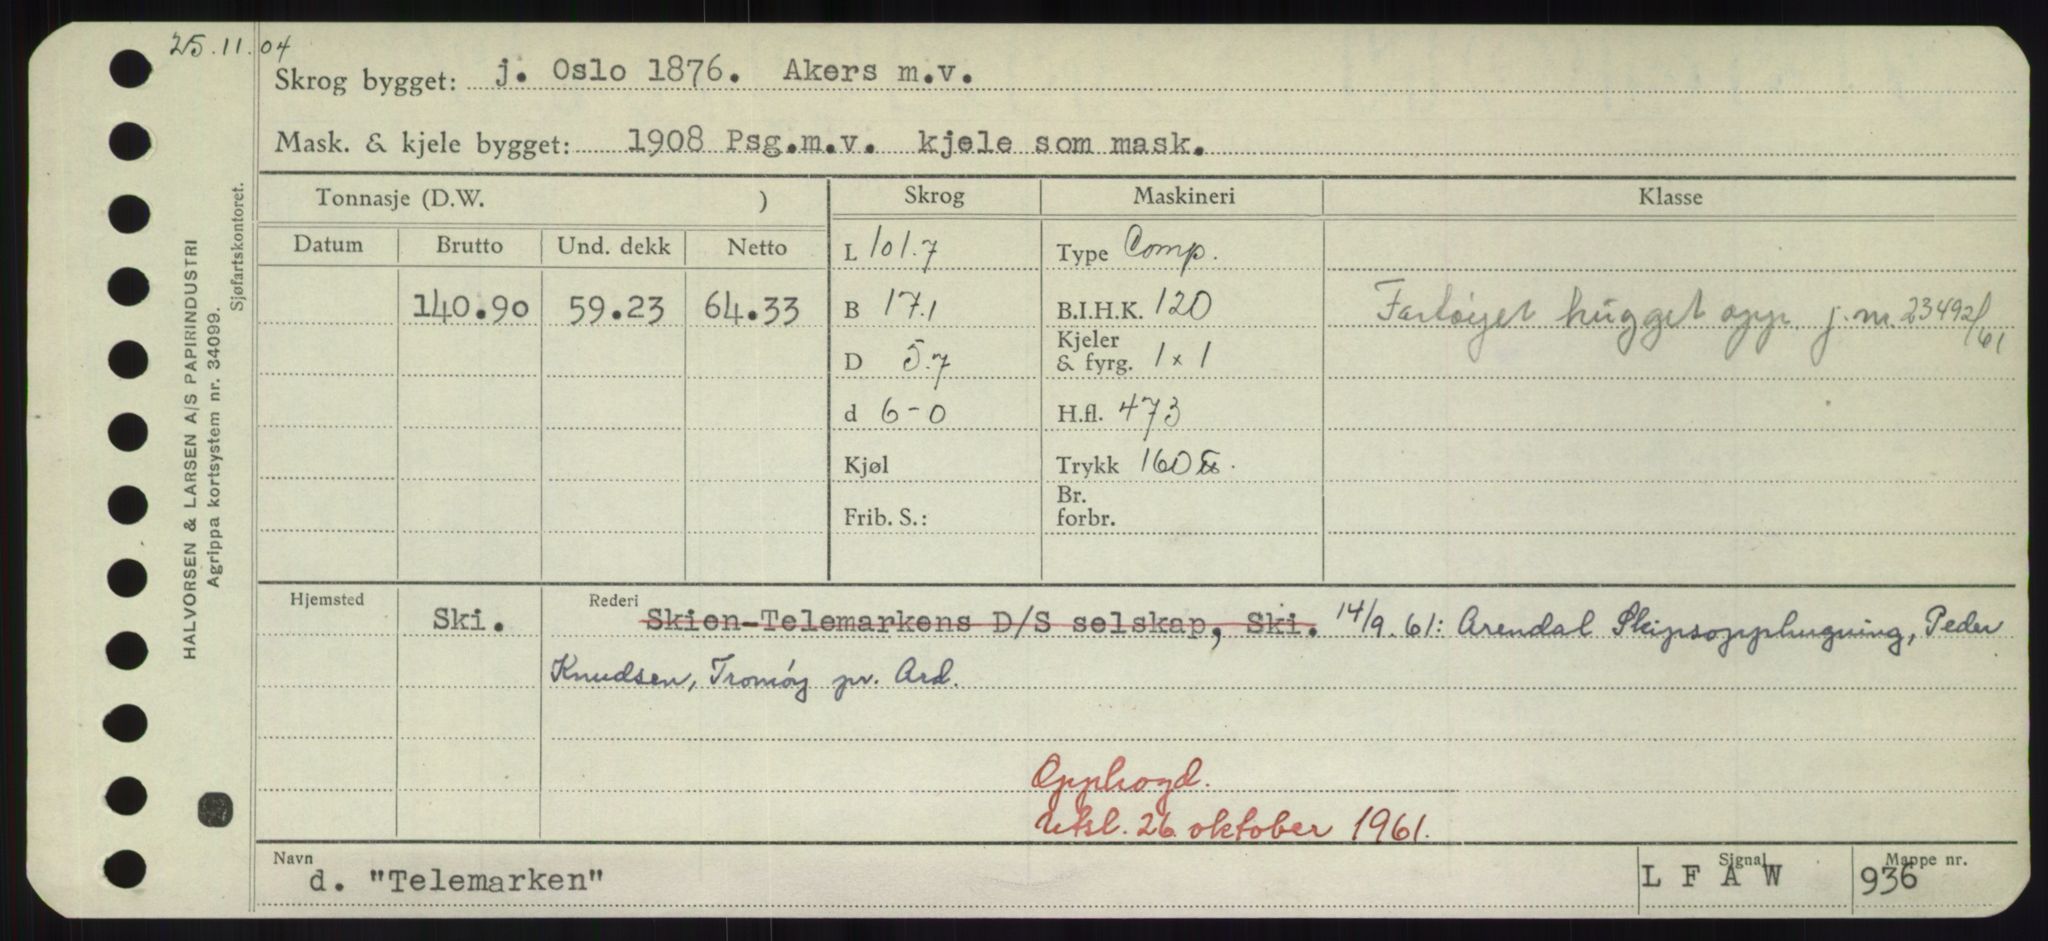 25.11.04
Skrog bygget: j. Oslo 1876. Akers m.v.
Mask. & kjele bygget: 1908 Psg.m.v. kjele som mask.
Tonnasje (D.W. ) Skrog Maskineri Klasse
Datum Brutto Und. dekk Netto L 101.7 Type Comp.
140.90 59.23 64.33 B 17.1 B.I.H.K. 120 Fartøyet hugget opp. j.nr. 23492/61
D 5.7 Kjeler & fyrg. 1 x 1
d 6-0 H.fl. 473
Kjøl Trykk 160 ℔.
Frib. S.: Br. forbr.
Hjemsted Ski. Rederi Skien-Telemarkens D/S selskap, Ski. 14/9.61: Arendal Skipsopphugning, Peder
Knudsen, Tromøy pr. Ard.
Opphogd.
Utsl. 26. oktober 1961.
Navn d. "Telemarken" Signal L F A W Mappe nr. 936
HALVORSEN & LARSEN A/S PAPIRINDUSTRI
Agrippa kortsystem nr. 34099.
Sjøfartskontoret.